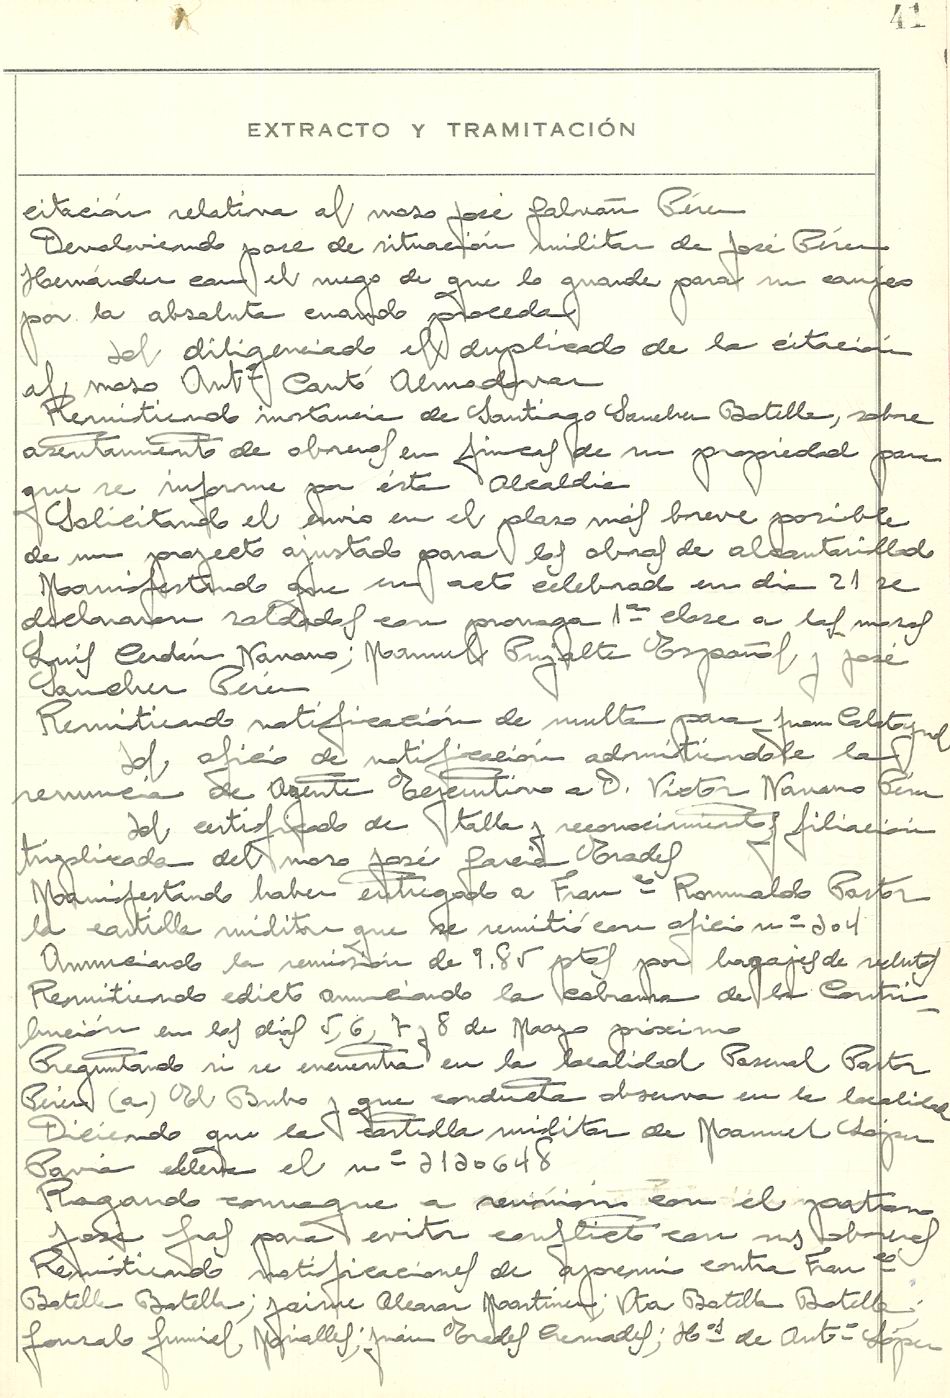 41
EXTRACTO Y TRAMITACIÓN
citación relativa al mozo José Galvañ Pérez
Devolviendo pase de situación militar de José Pérez
Hernández con el ruego de que lo guarde para su canjeo
por la absoluta cuando proceda
Id diligenciado el duplicado de la citación
al mozo Antº Cantó Almodovar
Remitiendo instancia de Santiago Sanchez Botella, sobre
asentamiento de obreros en fincas de su propiedad para
que se informe por ésta Alcaldia
Solicitando el envio en el plazo más breve posible
de un proyecto ajustado para las obras de alcantarillado
Manifestando que en acto celebrado en dia 21 se
declararon soldados con prorroga 1ª clase a los mozos
Luis Cerdán Navarro; Manuel Pujalte Español y José
Sanchez Pérez
Remitiendo notificación de multa para Juan Calatayud
Id, oficio de notificación admitiendole la
renuncia de Agente Ejecutivo a D. Victor Navarro Pérez
Id certificado de talla y reconocimiento y filiación
triplicada del mozo José Garcia Tradef
Manifestando haber entregado a Franco Romualdo Pastor
la cartilla militar que se remitió con oficio nº 204
Anunciando la remisión de 9,85 ptas por bagajes de reclutas
Remitiendo edicto anunciando la cobranza de la Contri-
bución en los dias 5, 6, 7 y 8 de Marzo próximo
Preguntando si se encuentra en la localidad Pascual Pastor
Pérez (a) El Bubo y que conducta observa en la localidad
Diciendo que la cartilla militar de Manuel López
Pavia lleva el nº 2120648
Rogando convoque a reunión con el patrono
José Gras para evitar conflicto con sus obreros
Remitiendo notificaciones de apremio contra Franco
Botella Botella; Jaime Alcaraz Martinez; Vta Botella Botella;
Gonzalo Miralles; Juan Cremades; Hos de Antº López